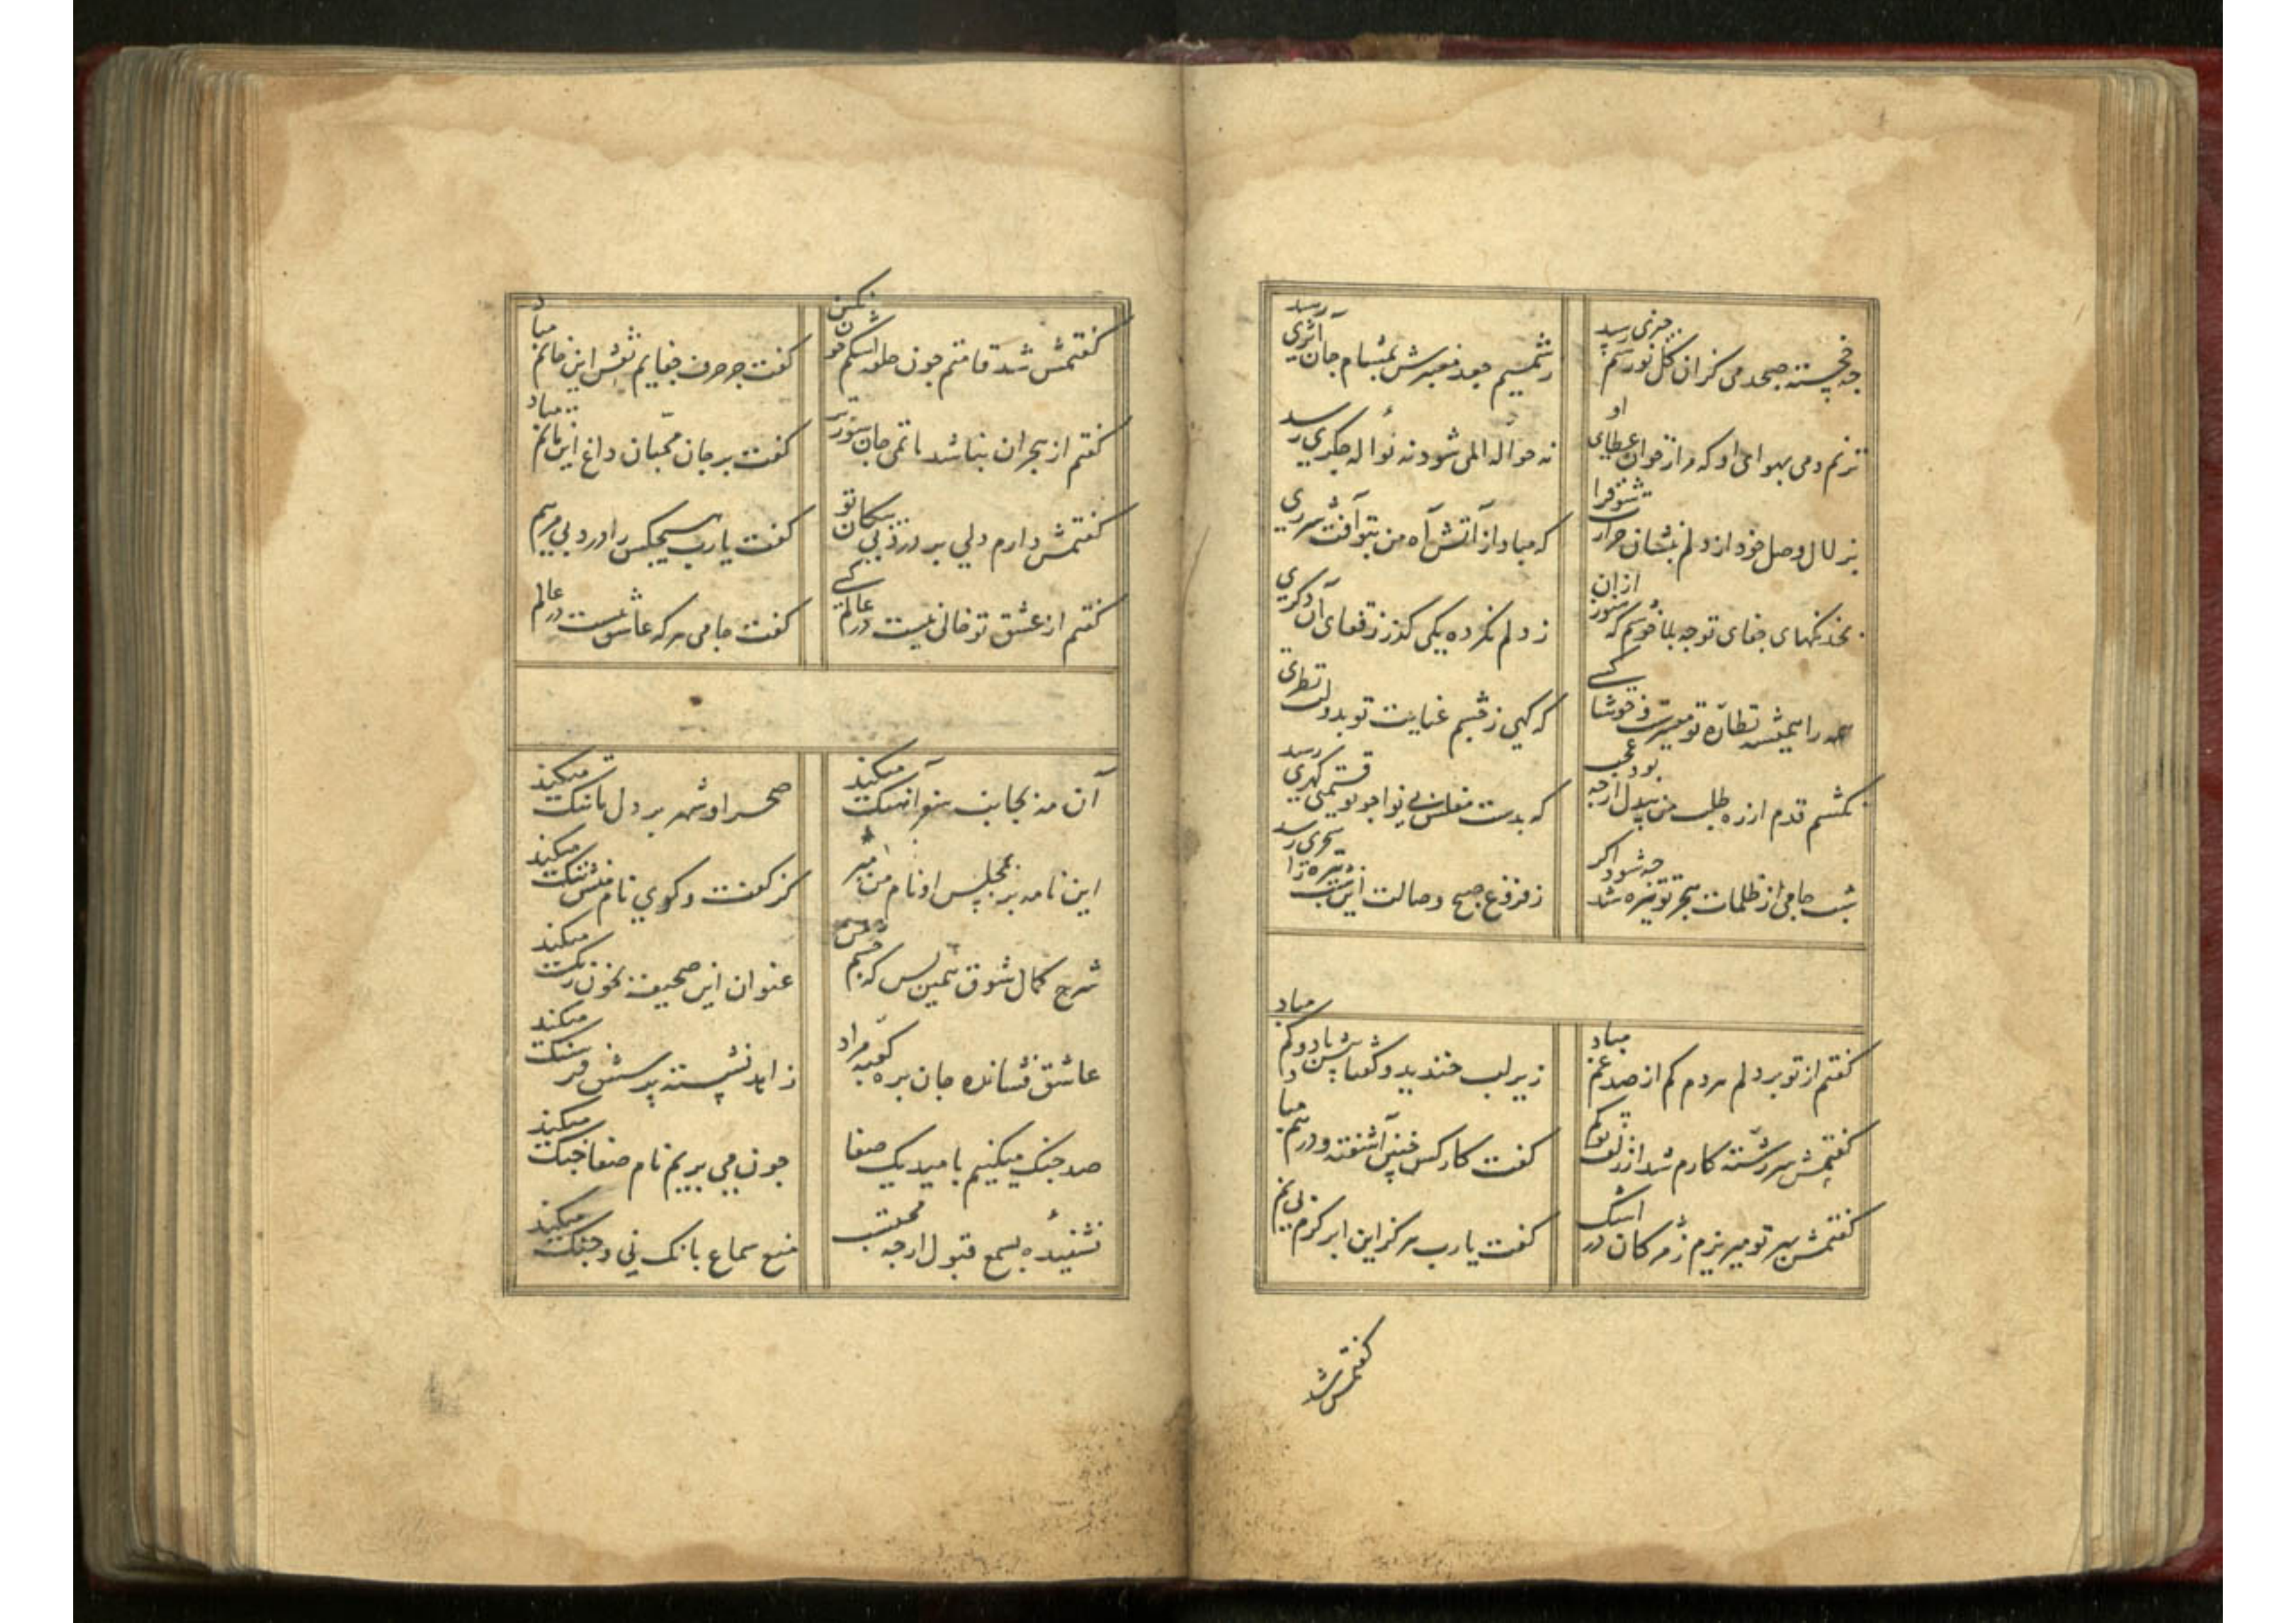 چه خجسته صبحدمی کزان گل نورسم خبری رسد
ز شمیم جعد معنبرش بمشام جان اثری رسد
نزنم دمی بهوای او که مرا ز خوان عطای او
نه حواله المی شود نه نواله جگری رسد
بزلال وصل خود از دلم بنشان حرارت شوق را
که مباد از آتش آه من بتو آفت شرری رسد
خدنگهای جفای تو چه بلا خوشم که هنوز ازان
ز دلم نکرده یکی گذر ز قفای آن دگری
همه را همیشه نظاره تو میسرست و خوشا کسی
که گهی ز چشم عنایت تو بدولت نظری
نکشم قدم از ره طلب من بیدل ارچه بود عجب
که بدست مفلس بی نوا چو تو قیمتی گهری رسد
شب جامی از ظلمات هجر تو تیره شد چه شود اگر
ز فروغ صبح وصالت این شب تیره را سحری رسد
گفتم از تو بر دلم هر دم کم از صد غم مباد
زیر لب خندید و گفتا بیش باد و کم مباد
گفتمش سررشته کارم شد از زلف تو گم
گفت کار کس چنین آشفته و درهم مباد
گفتمش بهر تو میریزم ز مژگان در اشک
گفت یارب هرگز این ابر کرم بی نم
گفتمش شد
گفتمش شد قامتم چون حلقه اشکم خون نگین
گفت جز حرف جفایم نقش این خاتم مباد
گفتم از هجران بنا شد ماتمی جان سوزتر
گفت بر جان محبان داغ این ماتم مباد
گفتمش دارم دلی پر درد بی پیکان تو
گفت یارب هیچکس را درد بی مرهم
گفتم از عشق تو خالی نیست در عالم کسی
گفت جامی هر که عاشق نیست در عالم
آن مه بجانب سفر آهنگ میکند
صحرا و شهر بر دل ما تنگ میکند
این نامه بر بمجلس او نام من مبر
کز گفت و گوی نام منش ننگ میکند
شرح کمال شوق همین بس که چشم من
عنوان این صحیفه بخون رنگ میکند
عاشق فشانده جان بره کعبه مراد
زاهد نشسته پرسش فرسنگ میکند
صد جنگ میکنیم بامید یک صفا
چون می بریم نام صفا جنگ میکند
نشنیده بسمع قبول ارچه محتسب
منع سماع بانگ نی و چنگ میکند